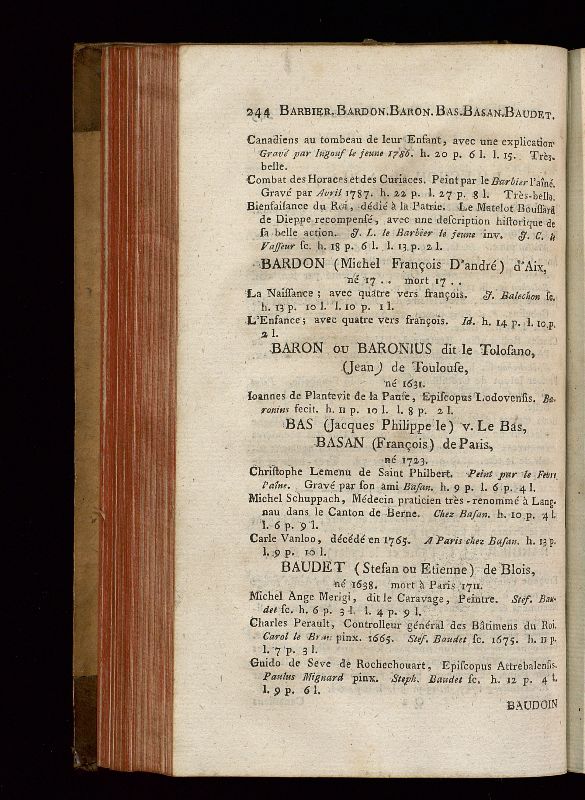 244 BARBIER. BARDON. BARON. BAS. BASAN. BAUDET.
Canadiens au tombeau de leur Enfant, avec une explication
Gravé par Ingouf le jeune 1786. h. 20 p. 6 l. l. 15. Très-
belle.
Combat des Horaces et des Curiaces. Peint par le Barbier l'aîné.
Gravé par Avril 1787. h. 22 p. l. 27 p. 8 l. Très-belle.
Bienfaiſance du Roi, dédié à la Patrie. Le Matelot Bouſſard
de Dieppe recompenſé, avec une deſcription hiſtorique de
ſa belle action. J. L. le Barbier le jeune inv. J. C. le
Vaſſeur ſc. h. 18 p. 6 l. l. 13 p. 2 l.
BARDON (Michel François D'andré) d'Aix,
né 17 . . mort 17 . .
La Naiſſance; avec quatre vers françois. J. Balechon ſc.
h. 13 p. 10 l. l. 10 p. 1 l.
L'Enfance; avec quatre vers françois. Id. h. 14 p. l. 10 p.
2 l.
BARON ou BARONIUS dit le Toloſano,
(Jean) de Toulouſe,
né 1631.
Ioannes de Plantevit de la Pauſe, Epiſcopus Lodovenſis. Ba-
ronius fecit. h. 11 p. 10 l. l. 8 p. 2 l.
BAS (Jacques Philippe le) v. Le Bas,
BASAN (François) de Paris,
né 1723.
Chriſtophe Lemenu de Saint Philbert. Peint par le Fevre
l'aîne. Gravé par ſon ami Baſan. h. 9 p. l. 6 p. 4 l.
Michel Schuppach, Médecin praticien très-renommé à Lang-
nau dans le Canton de Berne. Chez Baſan. h. 10 p. 4 l.
l. 6 p. 9 l.
Carle Vanloo, décédé en 1765. A Paris chez Baſan. h. 13 p.
l. 9 p. 10 l.
BAUDET (Stefan ou Etienne) de Blois,
né 1638. mort à Paris 1711.
Michel Ange Merigi, dit le Caravage, Peintre. Stef. Bau-
det ſc. h. 6 p. 3 l. l. 4 p. 9 l.
Charles Perault, Controlleur général des Bâtimens du Roi.
Carol le Brun pinx. 1665. Stef. Baudet ſc. 1675. h. 11 p.
l. 7 p. 3 l.
Guido de Seve de Rochechouart, Epiſcopus Attrebatenſis.
Paulus Mignard pinx. Steph. Baudet ſc. h. 12 p. 4 l.
l. 9 p. 6 l.
BAUDOIN